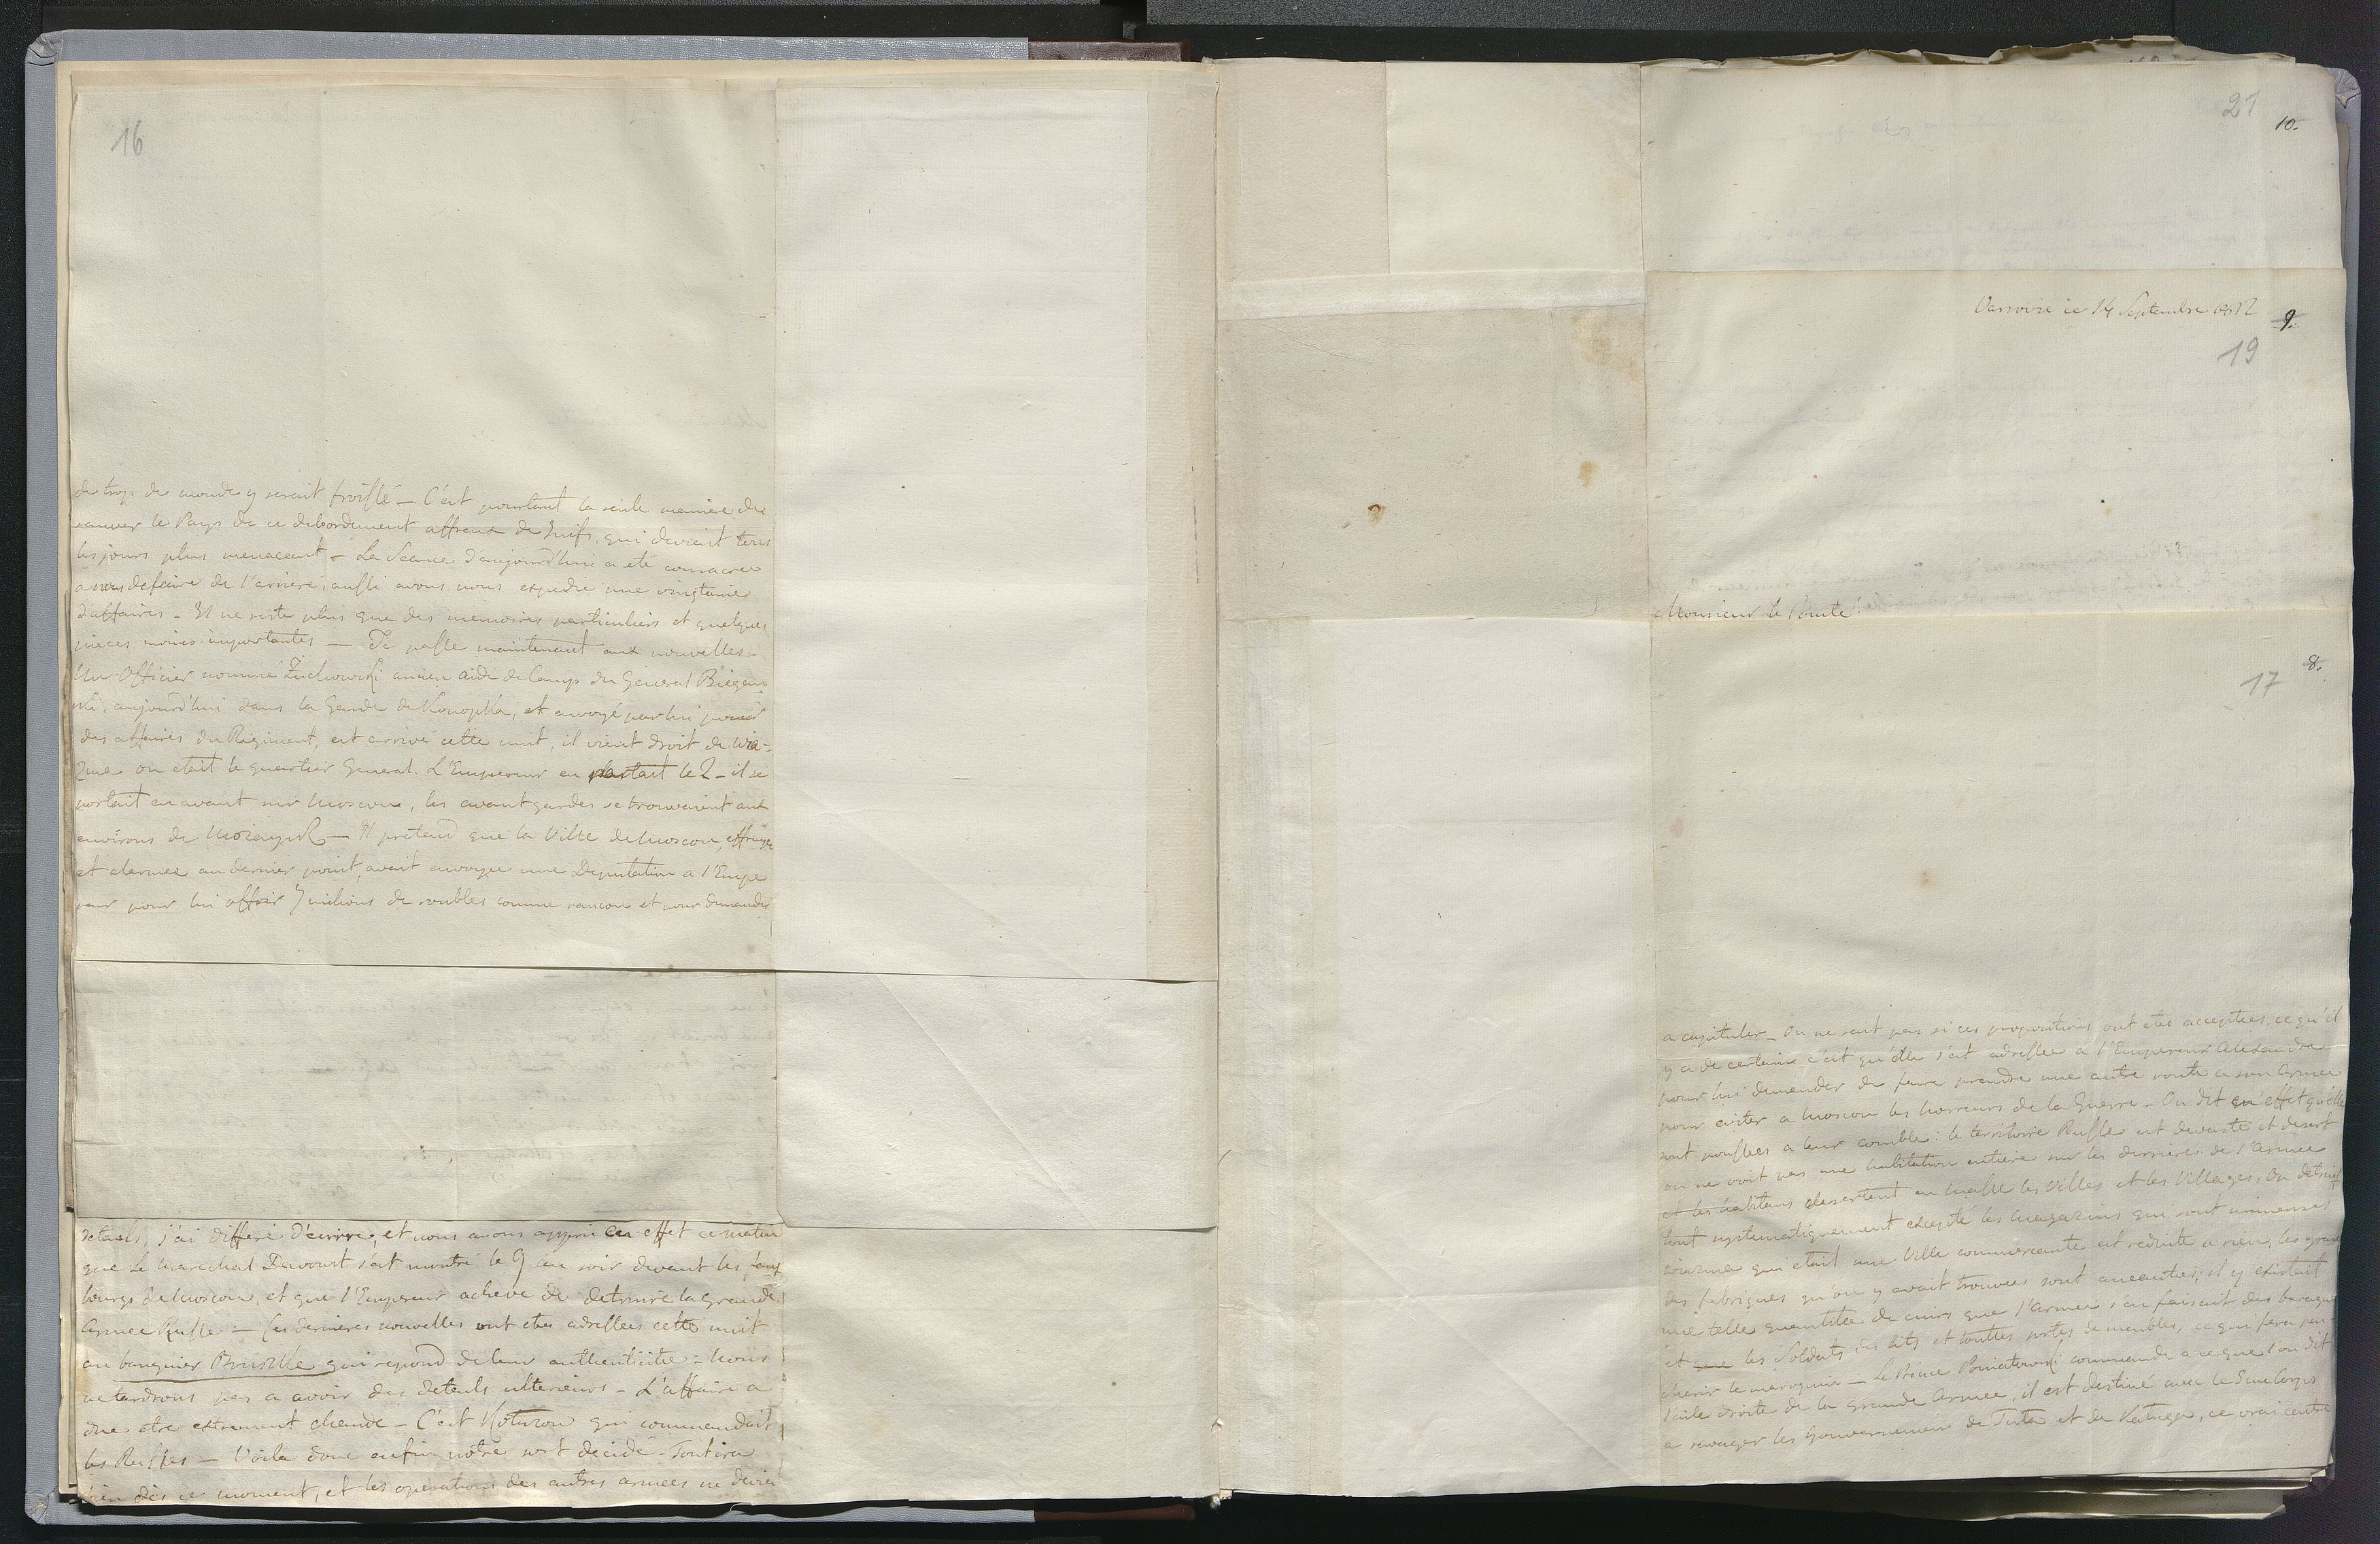 16
de trop de monde y serait froissé — C'est pourtant la seule maniere de
sauver le Pays de ce debordement affreux de Juifs, qui devient tous
les jours plus menacant — La Seance d'aujourd'hui a été consacrée
a nous defaire de l'arriere, aussi avons nous expedié une vingtaine
d'affaires — Il ne reste plus que des memoires particuliers et quelques
pieces moins importantes — Je passe maintenant aux nouvelles —
Un Officier nommé Żuchowski ancien aide de Camp du General Biegan
ski, aujourd'hui dans la Garde de Konopka, et envoyé par lui pour
des affaires du Regiment, est arrivé cette nuit, il vient droit de Wia-
zma ou etait le quartier General. L'Empereur en partait le 2 — il se
portait en avant sur Moscou, les avant gardes se trouvaient aux
environs de Mozaysk — Il pretend que la Ville de Moscou, effrayée
et alarmee au dernier point, avait envoyee une Deputation a l'Empe
reur pour lui offrir 7 milions de roubles comme rancon et pour demander
details, j'ai differé d'ecrire, et nous avons appris en effet ce matin
que le Marechal Davoust s'est montré le 9 au soir devant les faux
bourgs de Moscou, et que l'Empereur acheve de detruire la grande
Armee Russe — Ces dernieres nouvelles ont etes adressees cette nuit
au banquier qui repond de leur authenticite — Nous
ne tardrons pas a avoir des details ulterieurs — L'affaire a
due etre extrement chaude — C'est Kotuzow qui commandait
les Russes — Voila donc enfin notre sort decidé — Tout ira
bien dès ce moment, et les operations des autres armees ne
21
10.
Varsovie ce 14 Septembre 1812
9.
19
Monsieur le Comte!
8.
17
a capituler — On ne sait pas si ces propositions ont etes acceptees, ce qu'il
y a de certain c'est qu'elle s'est adressee a l'Empereur Alexandre
pour lui demander de faire prendre une autre route a son Armee
pour eviter a Moscou les horreurs de la Guerre — On dit en effet qu'elles
sont poussees a leur comble: le territoire Russe est devasté et desert
on ne voit pas une habitation entiere sur les derrieres de l'Armee
et les habitans desertent en masse les Villes et les Villages, On detruit
tout systematiquement excepté les magazins qui sont immenses
qui etait une Ville commercante est reduite a rien, les grandes
des fabriques qu'on y avait trouvees sont aneanties; il y existait
une telle quantitée de cuirs que l'armee s'en faisait des baraques
et que les Soldats des lits et touttes sortes de meubles, ce qui fera ren
cherir le maroquin — Le Prince Poniatowski commande a ce que l'on dit
l'aile droite de la grande Armee, il est destiné avec le 5me Corps
a ravager les Gouvernemens de Tula et de Kaluga, ce vrai centre